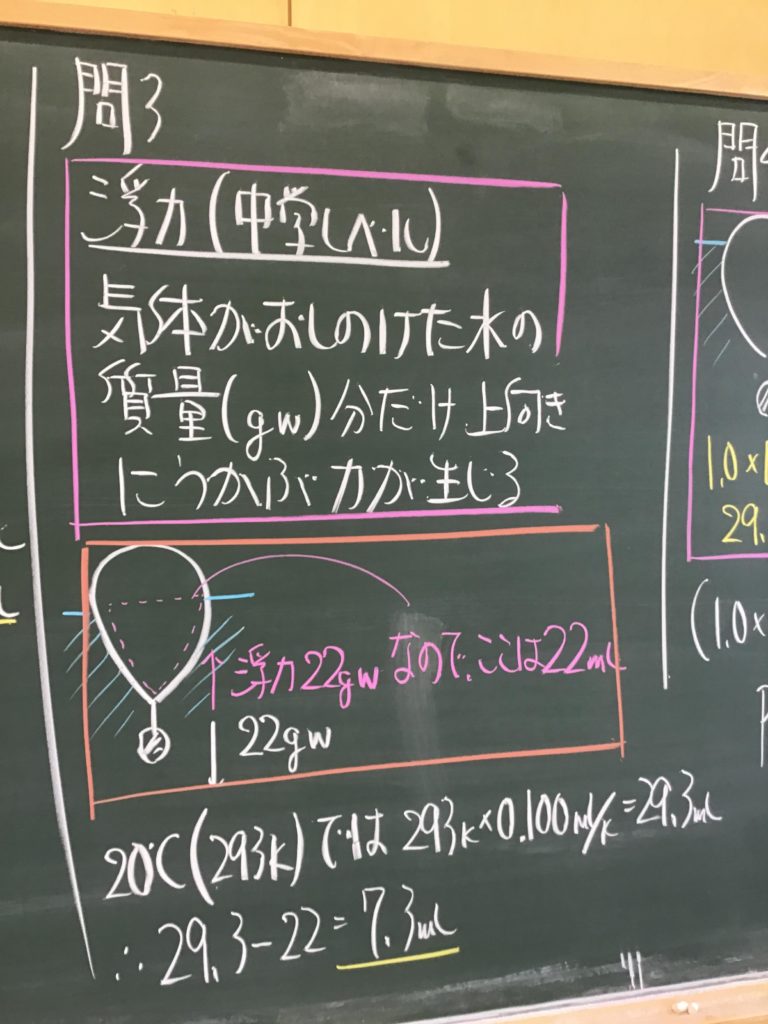 問3
浮力(中学レベル)
気体がおしのけた水の
質量(gw)分だけ上向き
にうかぶ力が生じる
↑浮力22gwなので、ここは22mL
↓22gw
20℃(293K)では 293K×0.100mL/K=29.3mL
∴29.3-22=7.3mL
問4
1.0×1
29.
(1.0×